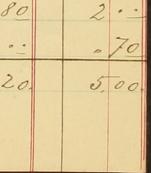 80 2 ..
.. . 70
20. 5.00.